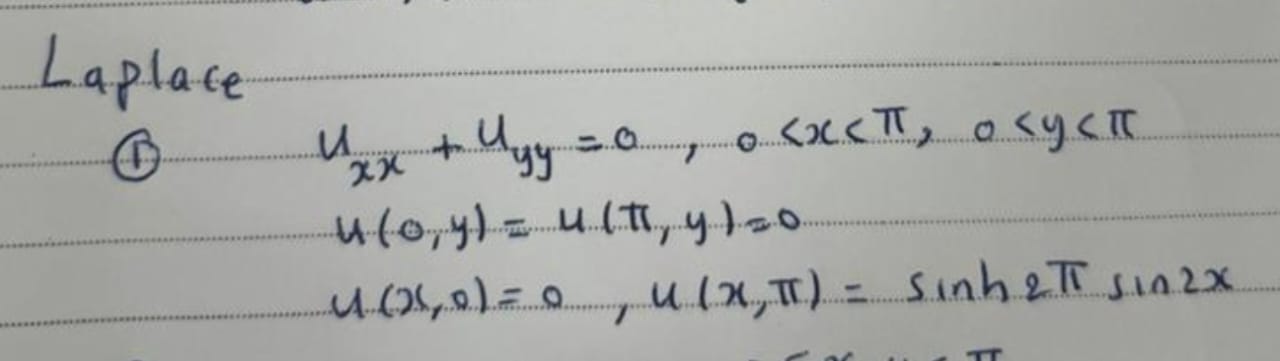 Laplace
① u_xx + u_yy = 0 , 0 < x < π, 0 < y < π
u(0,y) = u(π, y) = 0
u(x,0) = 0 , u(x,π) = sinh 2π sin 2x